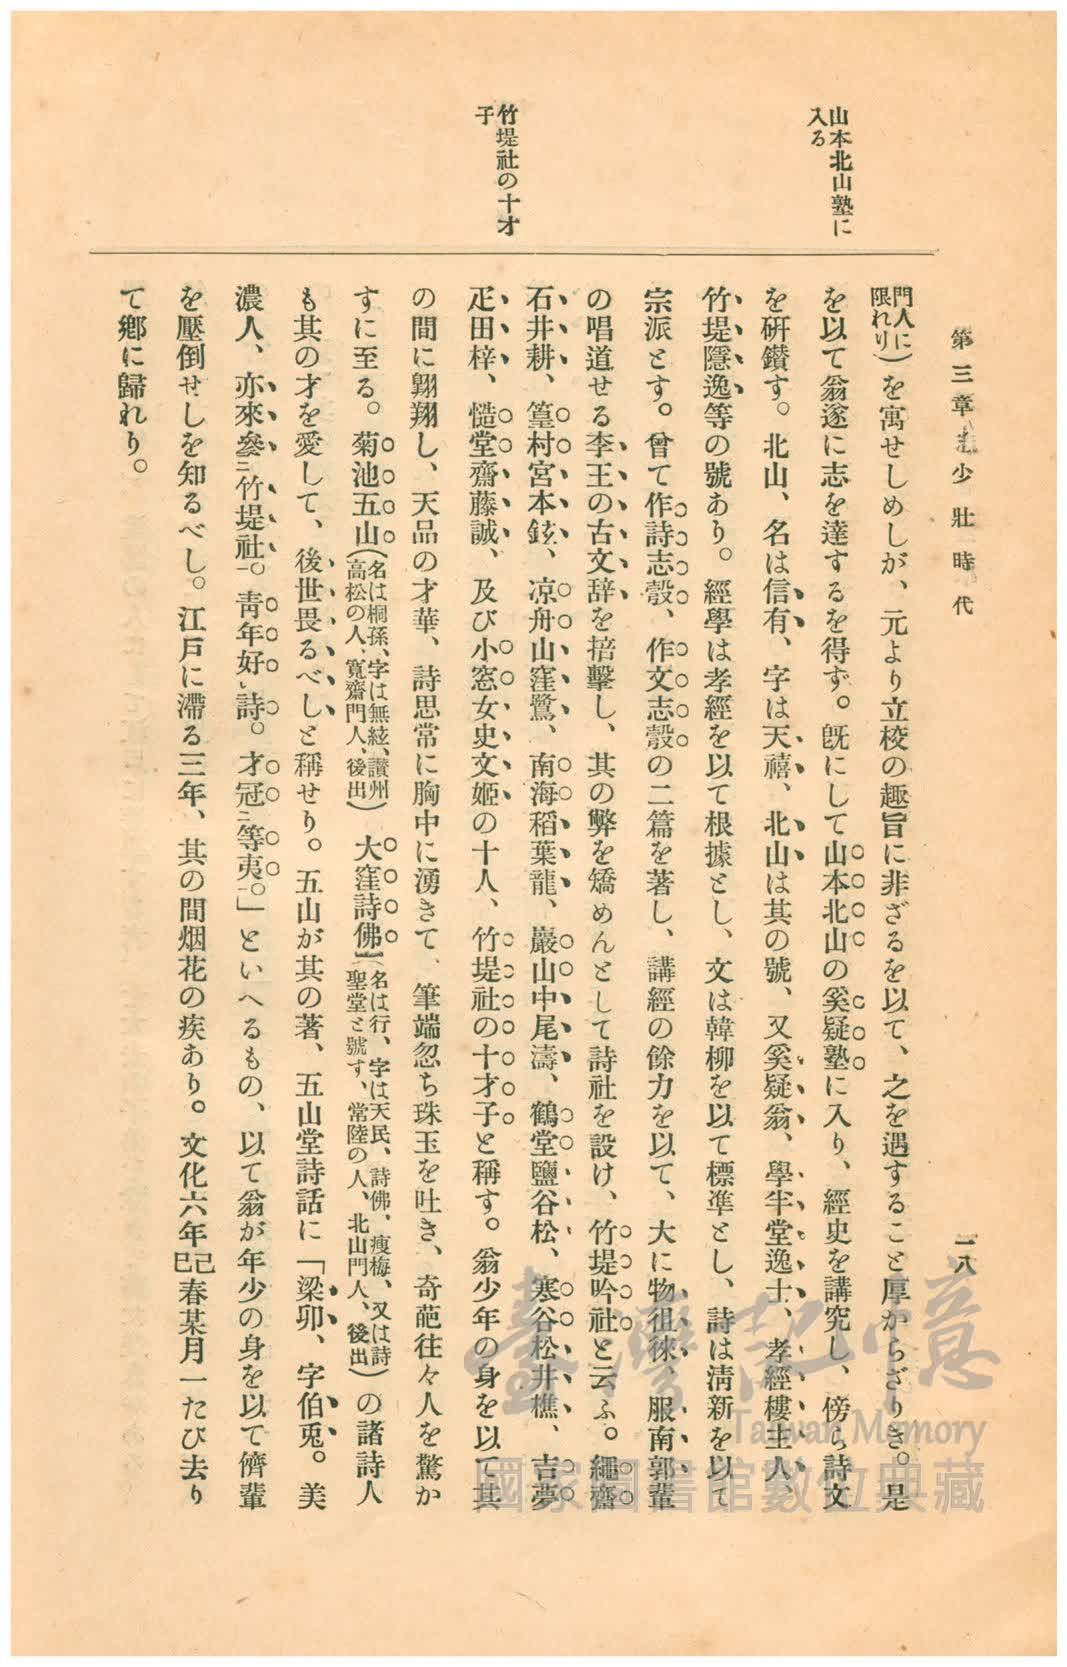 第三章 少壯時代
一八
山本北山塾に
入る
竹堤社の十才
子
門人に
限れり）を寓せしめしが、元より立校の趣旨に非ざるを以て、之を遇すること厚からざりき。是
を以て翁遂に志を達するを得ず。旣にして山本北山の奚疑塾に入り、經史を講究し、傍ら詩文
を硏鑚す。北山、名は信有、字は天禧、北山は其の號、又奚疑翁、學半堂逸士、孝經樓主人、
竹堤隱逸等の號あり。經學は孝經を以て根據とし、文は韓柳を以て標準とし、詩は淸新を以て
宗派とす。曾て作詩志彀、作文志彀の二篇を著し、講經の餘力を以て、大に物徂徠、服南郭輩
の唱道せる李王の古文辞を掊擊し、其の弊を矯めんとして詩社を設け、竹堤吟社と云ふ。繩齋
石井耕、篁村宮本鉉、凉舟山窪鷺、南海稻葉龍、巖山中尾濤、鶴堂鹽谷松、寒谷松井樵、吉夢
疋田梓、愷堂齋藤誠、及び小窓女史文姬の十人、竹堤社の十才子と稱す。翁少年の身を以て其
の間に翺翔し、天品の才華、詩思常に胸中に湧きて、筆端忽ち珠玉を吐き、奇葩往々人を驚か
すに至る。菊池五山（名は桐孫、字は無絃、讃州
高松の人、寬齋門人、後出）大窪詩佛（名は行、字は天民、詩佛、瘦梅、又は詩
聖堂と號す、常陸の人、北山門人、後出）の諸詩人
も其の才を愛して、後世畏るべしと稱せり。五山が其の著、五山堂詩話に「梁卯、字伯兎。美
濃人、亦來參ニ竹堤社一。靑年好レ詩。才冠ニ等夷一。」といへるもの、以て翁が年少の身を以て儕輩
を壓倒せしを知るべし。江戶に滯る三年、其の間烟花の疾あり。文化六年己巳春某月一たび去り
て鄕に歸れり。
臺灣記憶
Taiwan Memory
國家圖書館數位典藏